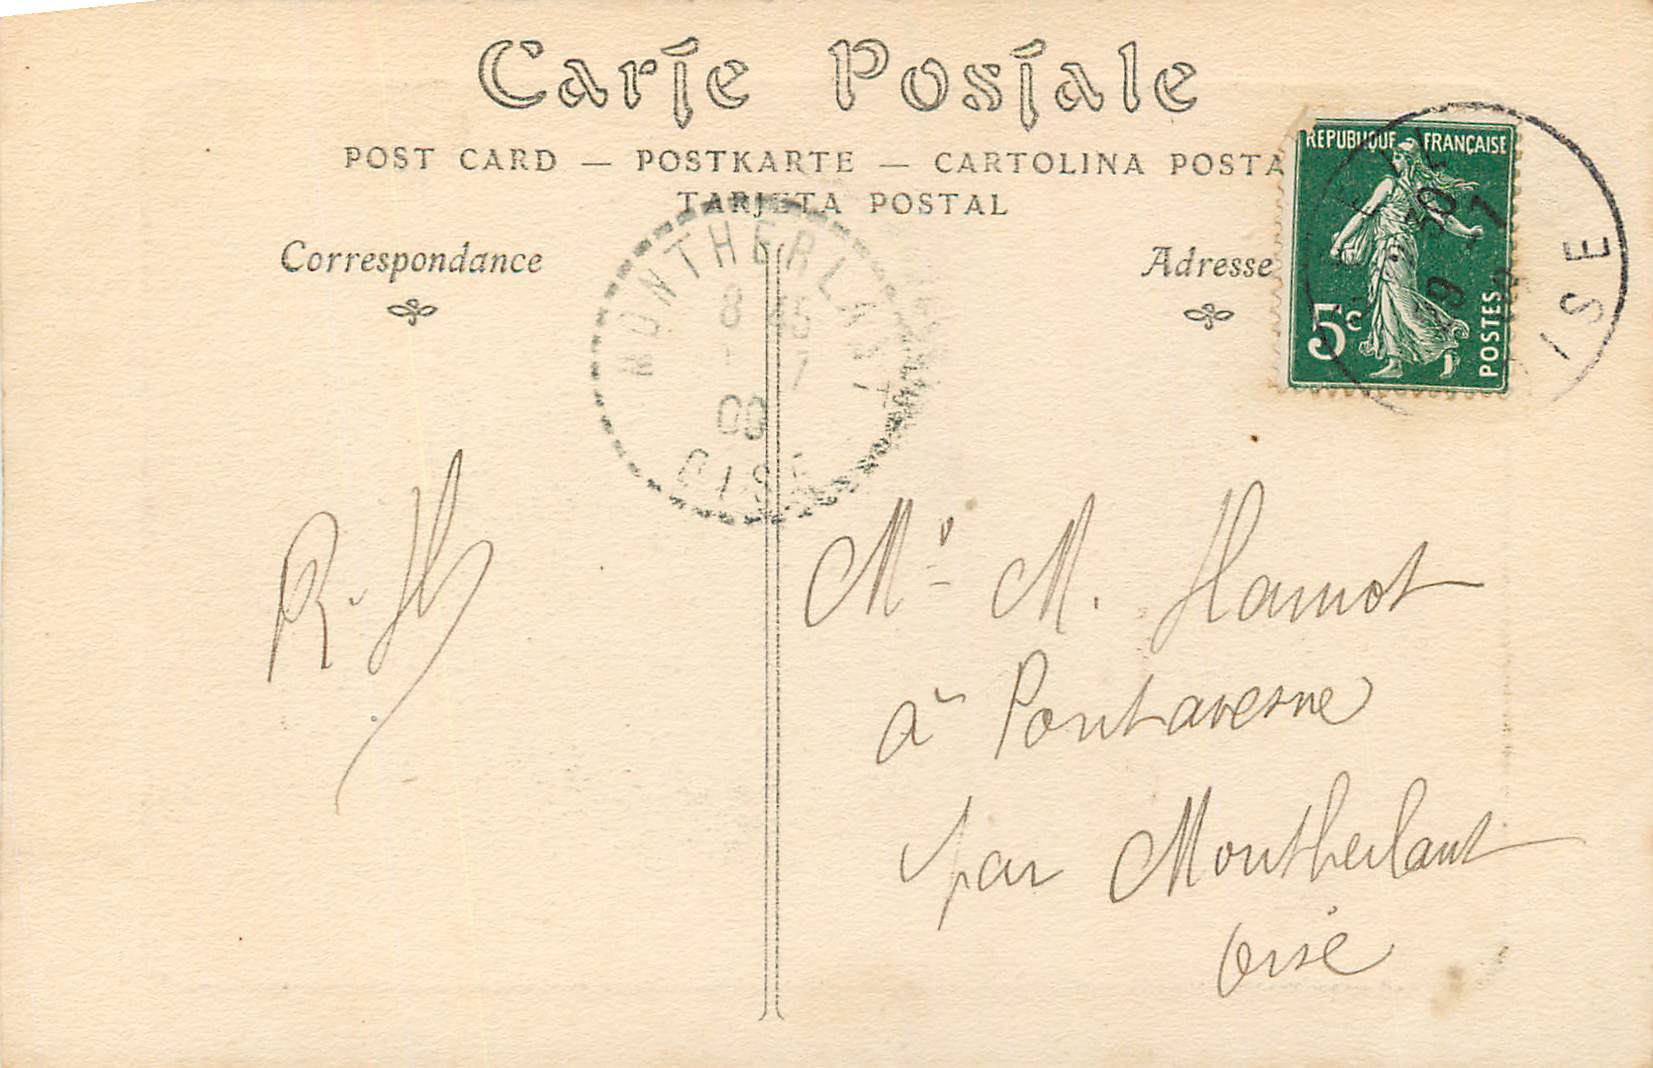 Carte Postale
POST CARD — POSTKARTE — CARTOLINA POSTA
TARJETA POSTAL
Correspondance
Adresse
REPUBLIQUE FRANÇAISE
5c
POSTES
MONTHERLANT
8 45
7
OISE
ISE
R. H
Mr M. Hamot
à Pontavesne
par Montherlant
Oise